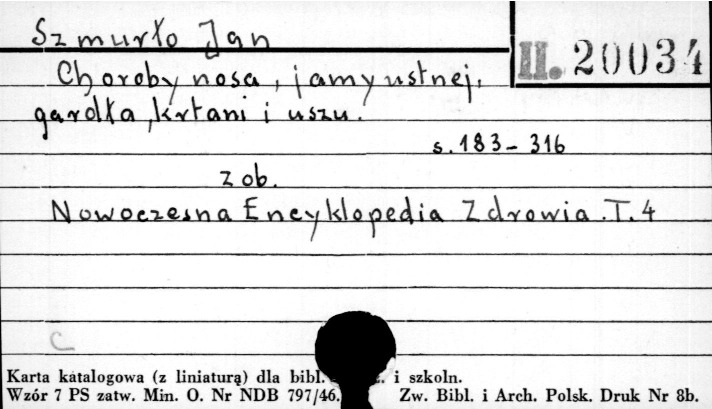 Szmurło Jan
II. 20034
Choroby nosa, jamy ustnej,
gardła, krtani i uszu.
s. 183-316
zob.
Nowoczesna Encyklopedia Zdrowia. T. 4
C
Karta katalogowa (z liniaturą) dla bibl. i szkoln.
Wzór 7 PS zatw. Min. O. Nr NDB 797/46. Zw. Bibl. i Arch. Polsk. Druk Nr 8b.